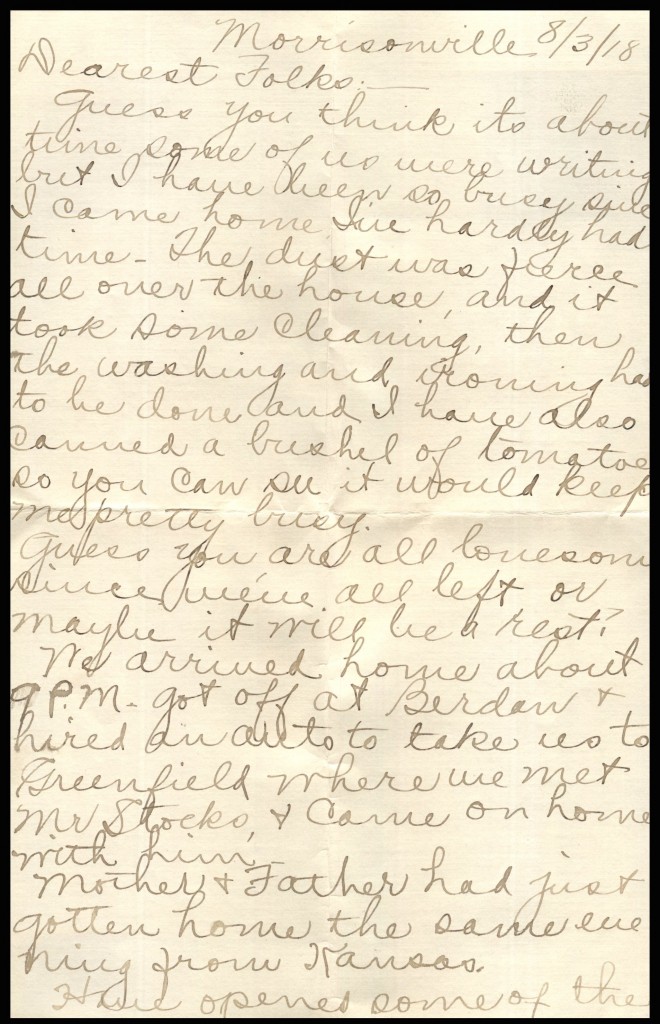 Morrisonville 8/3/18
Dearest Folks:—
Guess you think its about
time some of us were writing
but I have been so busy since
I came home I've hardly had
time - The dust was fierce
all over the house, and it
took some cleaning, then
the washing and ironing had
to be done and I have also
canned a bushel of tomatoes
so you can see it would keep
me pretty busy.
Guess you are all lonesome
since we've all left or
maybe it will be a rest?
We arrived home about
9 P.M. - got off at Berdan &
hired an auto to take us to
Greenfield where we met
Mr Stocks, & came on home
with him,
Mother & Father had just
gotten home the same eve
ning from Kansas.
Have opened some of the